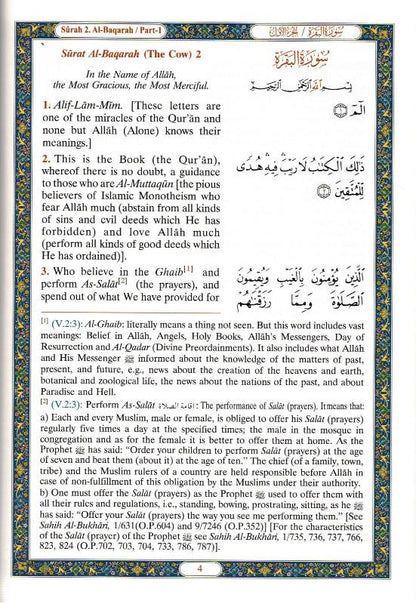 Sûrah 2. Al-Baqarah / Part-1
سورة البقرة ٢ / الجزء الأول ١
Sûrat Al-Baqarah (The Cow) 2
In the Name of Allâh,
the Most Gracious, the Most Merciful.
1. Alif-Lâm-Mîm. [These letters are
one of the miracles of the Qur'ân and
none but Allâh (Alone) knows their
meanings.]
2. This is the Book (the Qur'ân),
whereof there is no doubt, a guidance
to those who are Al-Muttaqûn [the pious
believers of Islamic Monotheism who
fear Allâh much (abstain from all kinds
of sins and evil deeds which He has
forbidden) and love Allâh much
(perform all kinds of good deeds which
He has ordained)].
3. Who believe in the Ghaib[1] and
perform As-Salât[2] (the prayers), and
spend out of what We have provided for
سُورَةُ البَقَرَةِ
بِسْمِ اللَّهِ الرَّحْمَٰنِ الرَّحِيمِ
الٓمٓ ١
ذَٰلِكَ الْكِتَابُ لَا رَيْبَ ۛ فِيهِ ۛ هُدًى
لِّلْمُتَّقِينَ ٢
الَّذِينَ يُؤْمِنُونَ بِالْغَيْبِ وَيُقِيمُونَ
الصَّلَاةَ وَمِمَّا رَزَقْنَاهُمْ
[1] (V.2:3): Al-Ghaib: literally means a thing not seen. But this word includes vast
meanings: Belief in Allâh, Angels, Holy Books, Allâh's Messengers, Day of
Resurrection and Al-Qadar (Divine Preordainments). It also includes what Allâh
and His Messenger ﷺ informed about the knowledge of the matters of past,
present, and future, e.g., news about the creation of the heavens and earth,
botanical and zoological life, the news about the nations of the past, and about
Paradise and Hell.
[2] (V.2:3): Perform As-Salât إقامة الصلاة : The performance of Salât (prayers). It means that:
a) Each and every Muslim, male or female, is obliged to offer his Salât (prayers)
regularly five times a day at the specified times; the male in the mosque in
congregation and as for the female it is better to offer them at home. As the
Prophet ﷺ has said: "Order your children to perform Salât (prayers) at the age
of seven and beat them (about it) at the age of ten." The chief (of a family, town,
tribe) and the Muslim rulers of a country are held responsible before Allâh in
case of non-fulfillment of this obligation by the Muslims under their authority.
b) One must offer the Salât (prayers) as the Prophet ﷺ used to offer them with
all their rules and regulations, i.e., standing, bowing, prostrating, sitting, as he ﷺ
has said: "Offer your Salât (prayers) the way you see me performing them." [See
Sahih Al-Bukhâri, 1/631(O.P.604) and 9/7246 (O.P.352)] [For the characteristics
of the Salât (prayer) of the Prophet ﷺ see Sahih Al-Bukhâri, 1/735, 736, 737, 766,
823, 824 (O.P.702, 703, 704, 733, 786, 787)].
4